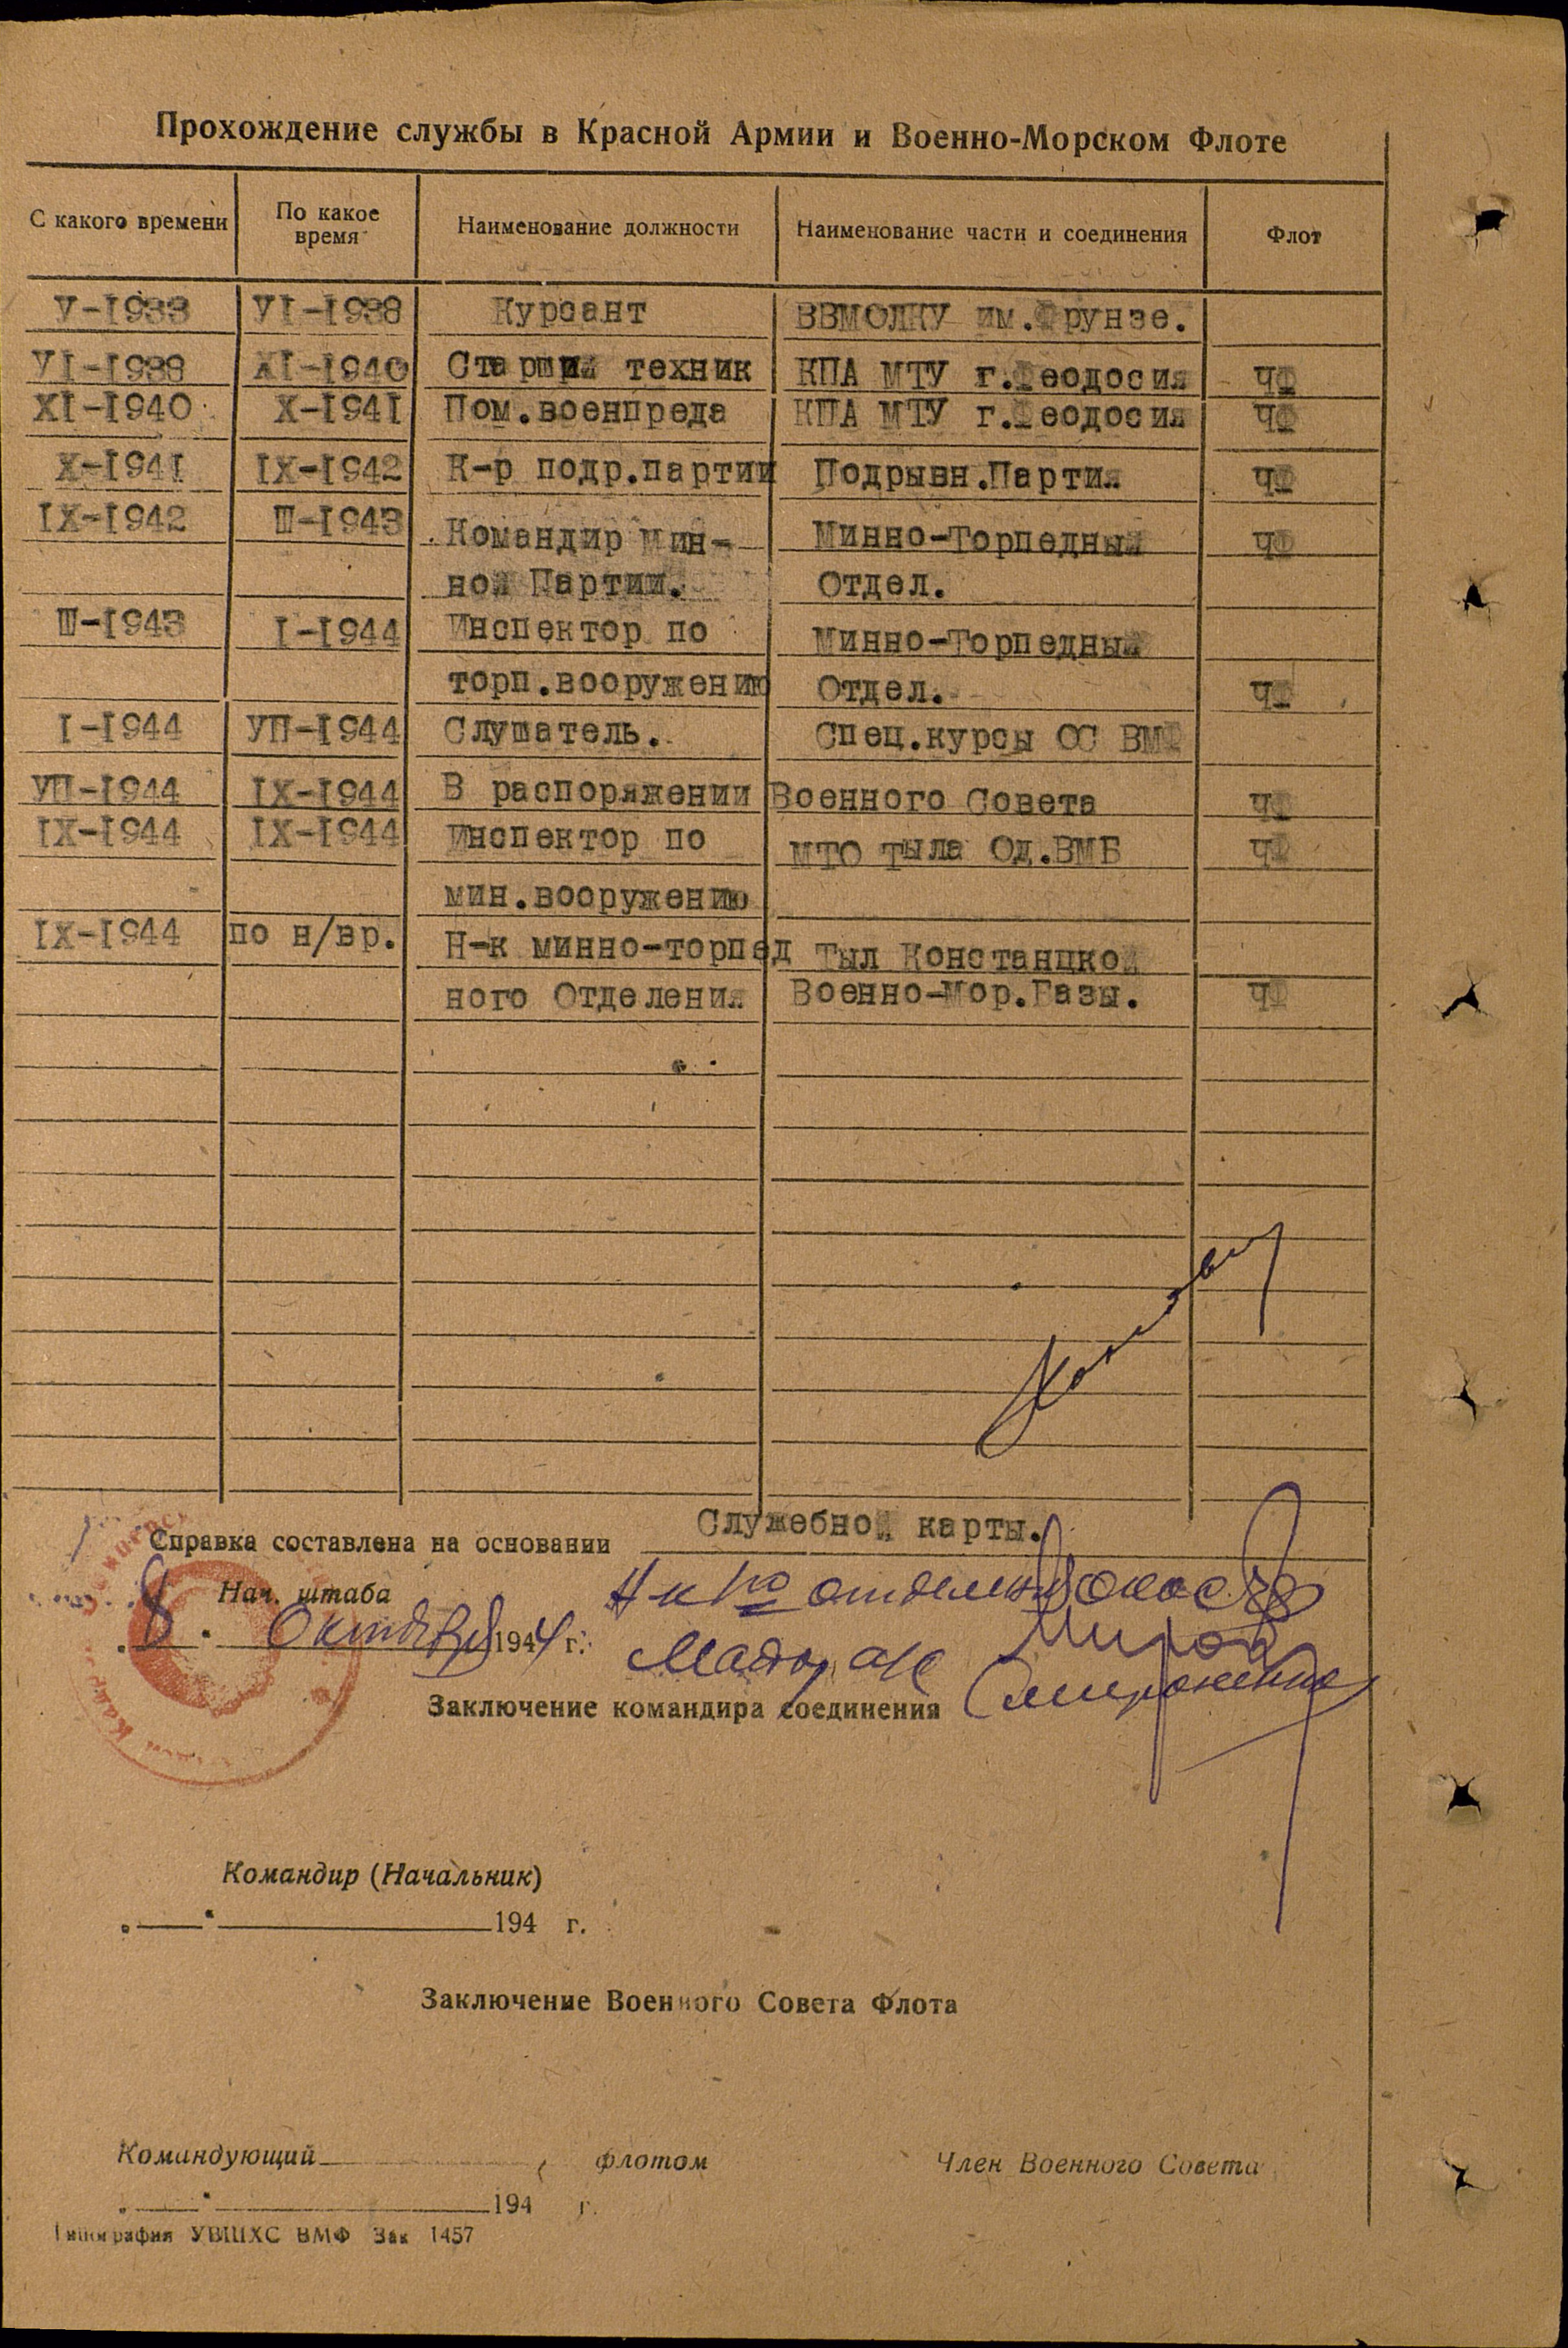 Прохождение службы в Красной Армии и Военно-Морском Флоте
С какого времени По какое время Наименование должности Наименование части и соединения Флот
У-1933 УI-1938 Курсант ВВМОЛКУ им.Фрунзе.
УI-1938 XI-1940 Старший техник КПА МТУ г.Феодосия ЧФ
XI-1940 X-1941 Пом.военпреда КПА МТУ г.Феодосия ЧФ
X-1941 IX-1942 К-р подр.партии Подрывн.Партия ЧФ
IX-1942 Ш-1943 Командир Мин- Минно-Торпедный ЧФ
ной Партии. Отдел.
Ш-1943 I-1944 Инспектор по Минно-Торпедный
торп.вооружению Отдел. ЧФ
I-1944 УП-1944 Слушатель. Спец.курсы ОС ВМФ
УП-1944 IX-1944 В распоряжении Военного Совета ЧФ
IX-1944 IX-1944 Инспектор по МТО тыла Од.ВМБ ЧФ
мин.вооружению
IX-1944 по н/вр. Н-к минно-торпед Тыл Констанцкой
ного Отделения Военно-Мор.Базы. ЧФ
Справка составлена на основании Служебной карты.
Нач. штаба
"8" Октября 1944 г.
Майор
Заключение командира соединения
Командир (Начальник)
" " 194 г.
Заключение Военного Совета Флота
Командующий флотом Член Военного Совета
" " 194 г.
Типография УВШХС ВМФ Зак 1457